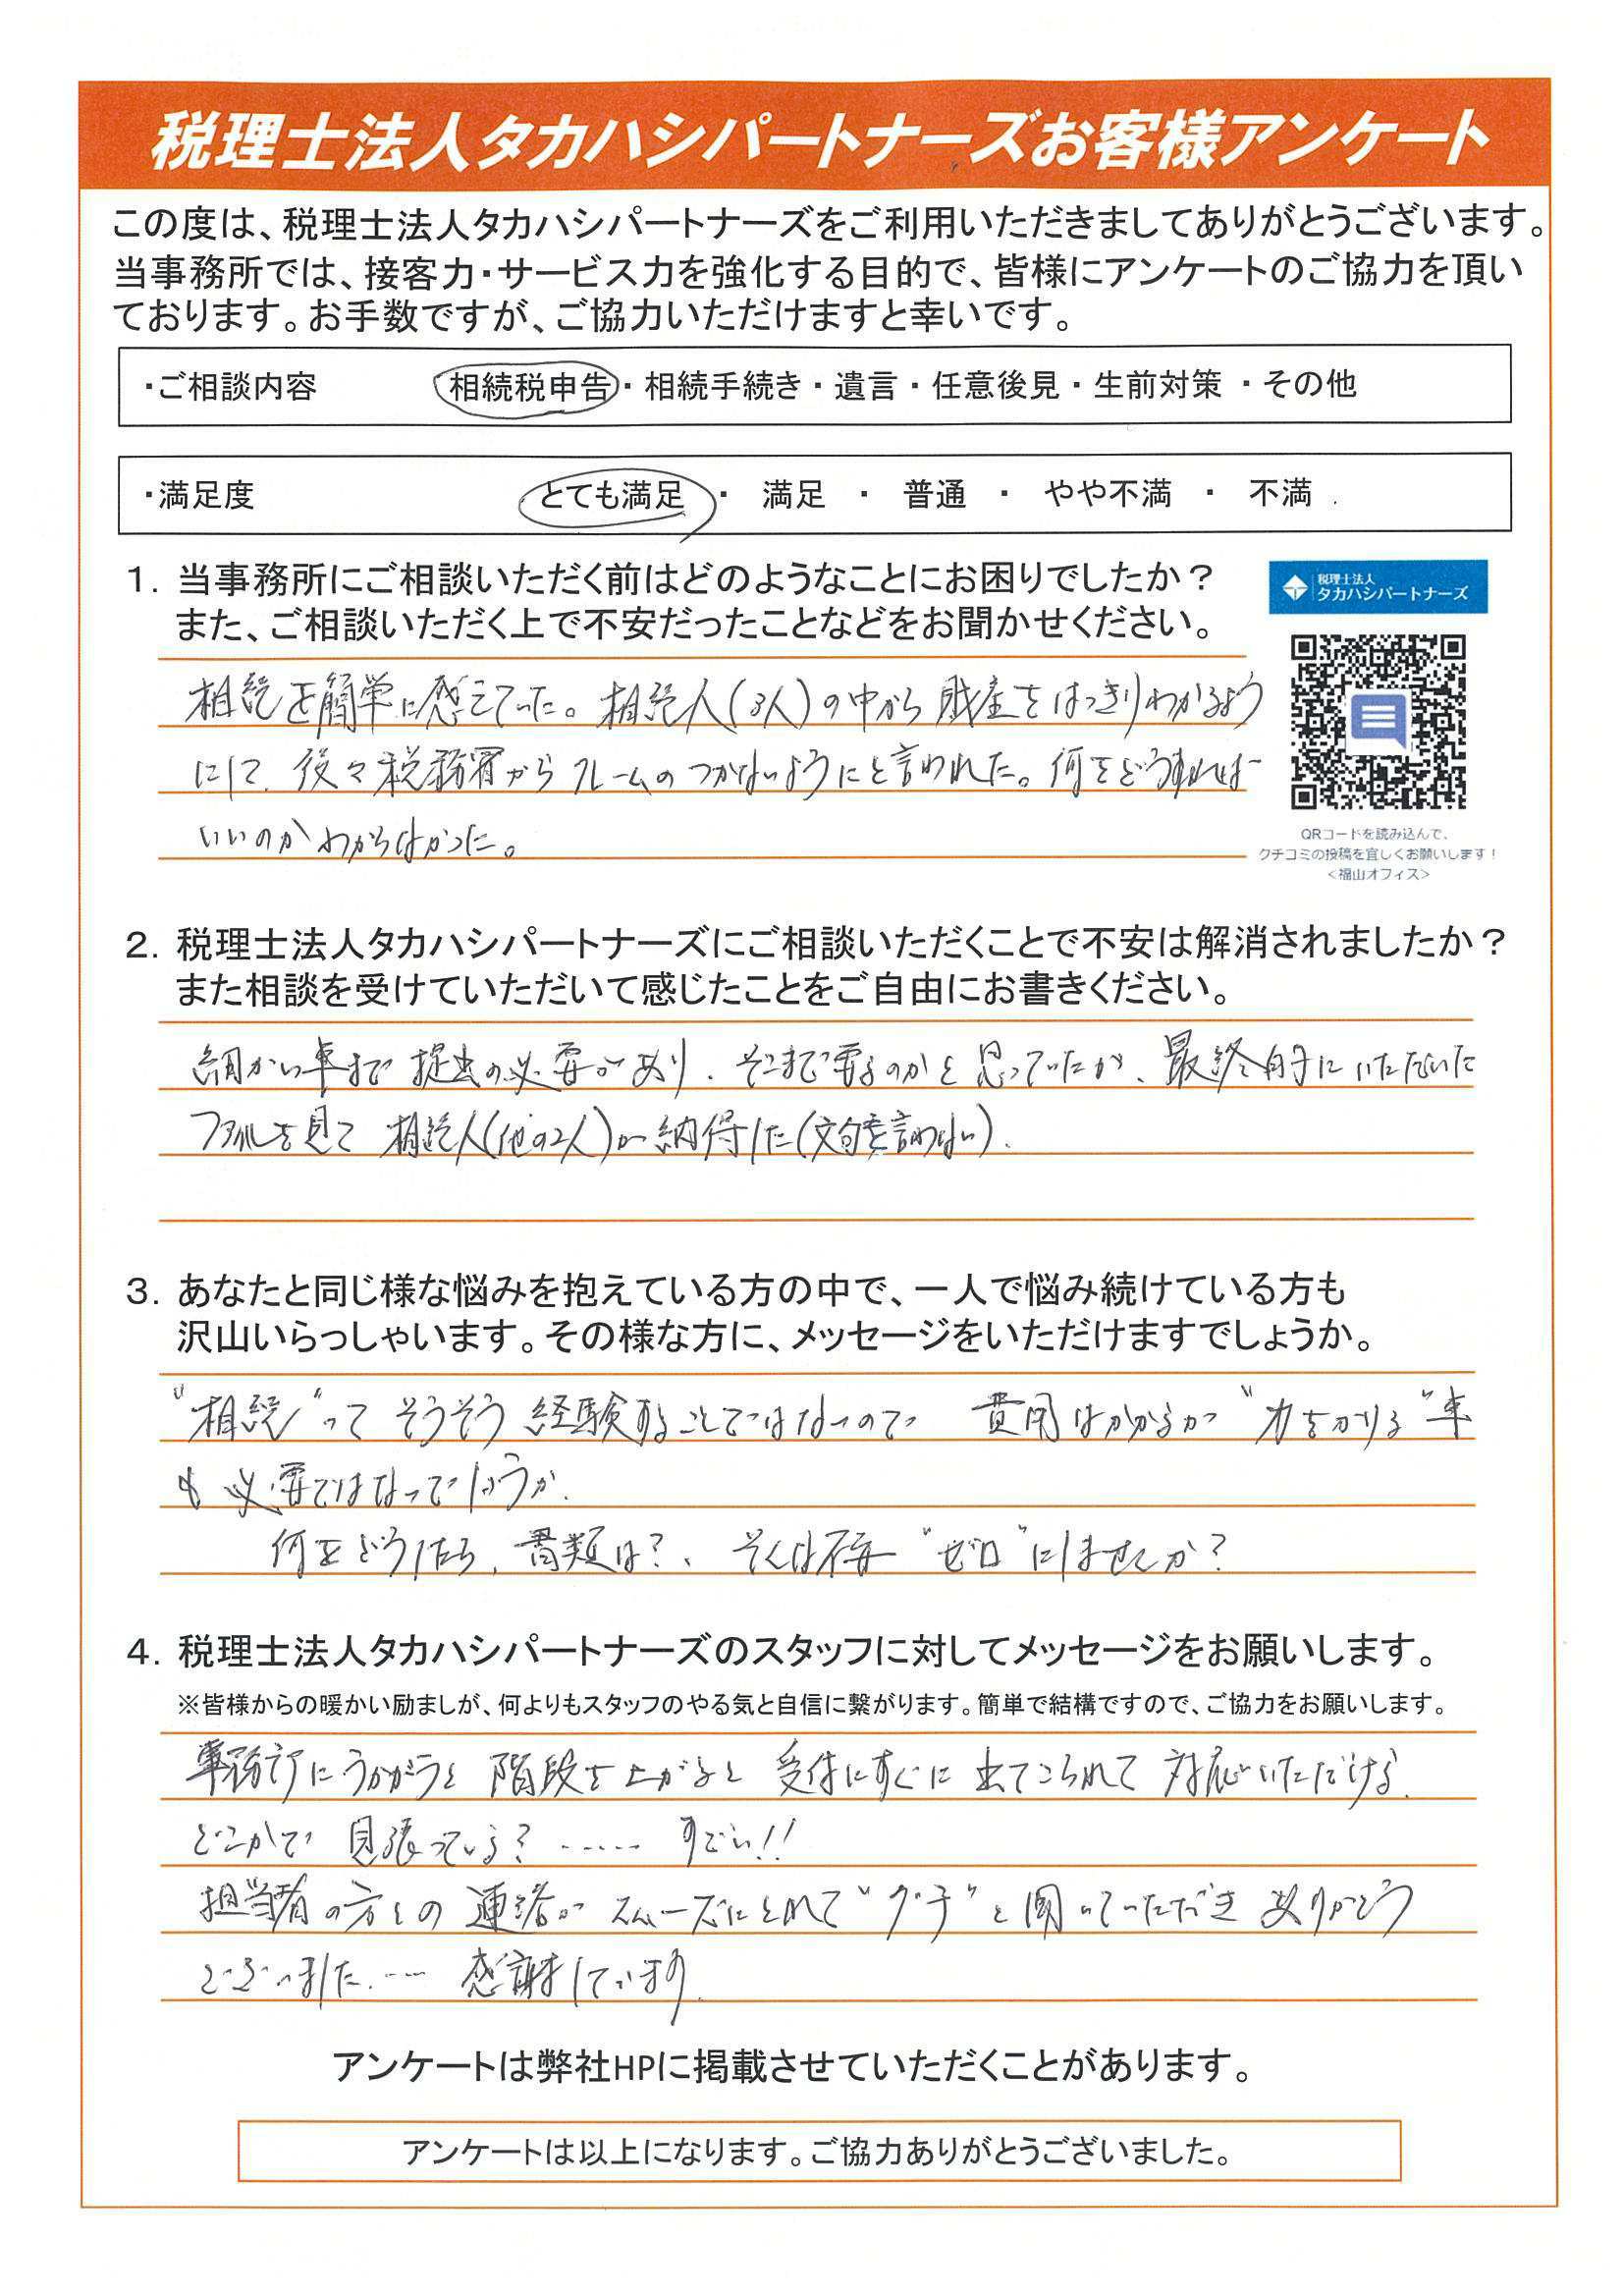 税理士法人タカハシパートナーズお客様アンケート
この度は、税理士法人タカハシパートナーズをご利用いただきましてありがとうございます。
当事務所では、接客力・サービス力を強化する目的で、皆様にアンケートのご協力を頂い
ております。お手数ですが、ご協力いただけますと幸いです。
・ご相談内容 相続税申告・相続手続き・遺言・任意後見・生前対策・その他
・満足度 とても満足・満足・普通・やや不満・不満
1. 当事務所にご相談いただく前はどのようなことにお困りでしたか？
また、ご相談いただく上で不安だったことなどをお聞かせください。
税理士法人
タカハシパートナーズ
相続を簡単に考えていた。相続人(3人)の中から財産をはっきりわかるよう
にして、後々税務署からクレームのつかないようにと言われた。何をどうすれば
いいのかわからなかった。
QRコードを読み込んで、
クチコミの投稿を宜しくお願いします！
＜福山オフィス＞
2. 税理士法人タカハシパートナーズにご相談いただくことで不安は解消されましたか？
また相談を受けていただいて感じたことをご自由にお書きください。
細かい事まで提出の必要があり、そこまで要るのかと思っていたが、最終的にいただいた
ファイルを見て相続人(他の2人)が納得した(文句を言わない)。
3. あなたと同じ様な悩みを抱えている方の中で、一人で悩み続けている方も
沢山いらっしゃいます。その様な方に、メッセージをいただけますでしょうか。
"相続"ってそうそう経験することではないので 費用はかかるが"力をかりる"事
も必要ではないでしょうか。
何をどうしたら、書類は？、そんな不安"ゼロ"にしませんか？
4. 税理士法人タカハシパートナーズのスタッフに対してメッセージをお願いします。
※皆様からの暖かい励ましが、何よりもスタッフのやる気と自信に繋がります。簡単で結構ですので、ご協力をお願いします。
事務所にうかがうと階段を上がると受付にすぐに出てこられて対応いただける。
どこかで見張っている？…… すごい!!
担当者の方との連絡がスムーズにとれて"グチ"と聞いていただきありがとう
ございました.… 感謝しています。
アンケートは弊社HPに掲載させていただくことがあります。
アンケートは以上になります。ご協力ありがとうございました。